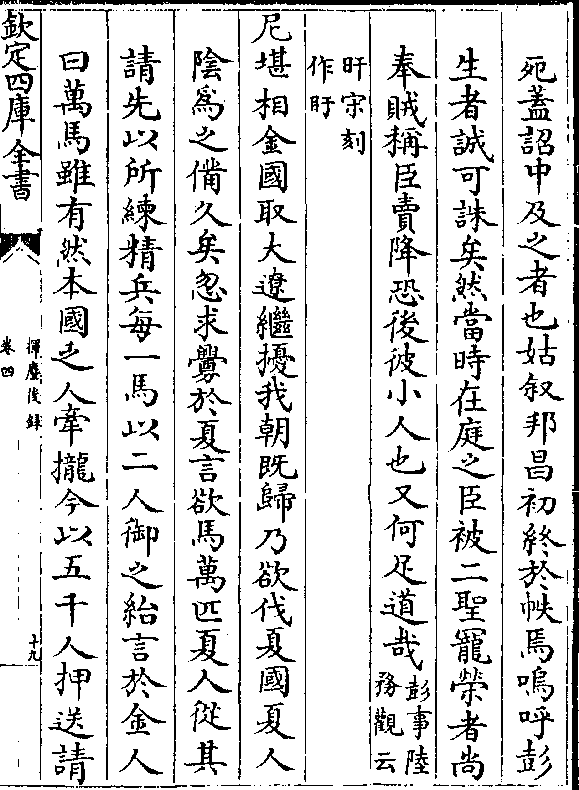 宛蓋詔中及之者也姑叙邦昌初終於帙焉嗚呼彭
生者誠可誅矣然當時在庭之臣被二聖寵榮者尚
奉賊稱臣賣降恐後彼小人也又何足道哉彭事陸
務觀云
旰宋刻
作盱
尼堪相金國取大遼繼擾我朝既歸乃欲伐夏國夏人
陰爲之備久矣忽求釁於夏言欲馬萬匹夏人從其
請先以所練精兵每一馬以二人御之紿言於金人
曰萬馬雖有然本國乏人牽攏今以五千人押送請
欽定四庫全書
揮麈後錄
卷四
十九